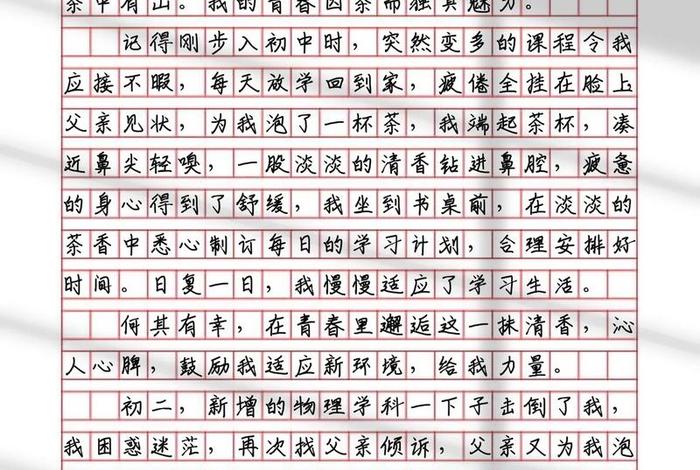 茶中有山。我的青春因茶而独具魅力。
记得刚步入初中时，突然变多的课程令我
应接不暇，每天放学回到家，疲倦全挂在脸上
父亲见状，为我泡了一杯茶，我端起茶杯，凑
近鼻尖轻嗅，一股淡淡的清香钻进鼻腔，疲惫
的身心得到了舒缓，我坐到书桌前，在淡淡的
茶香中悉心制订每日的学习计划，合理安排好
时间。日复一日，我慢慢适应了学习生活。
何其有幸，在青春里邂逅这一抹清香，沁
人心脾，鼓励我适应新环境，给我力量。
初二，新增的物理学科一下子击倒了我，
我困惑迷茫，再次找父亲倾诉，父亲又为我泡